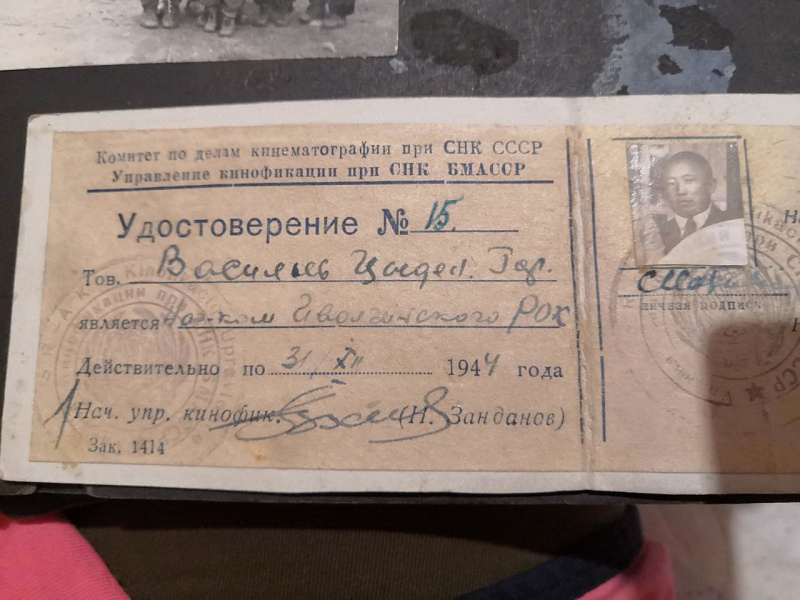 Комитет по делам кинематографии при СНК СССР
Управление кинофикации при СНК БМАССР
Удостоверение № 15.
Тов. Васильев Цыден. Гор.
является Начком Иволгинского РОК
Действительно по 31/XII 1944 года
Нач. упр. кинофик. (Н. Занданов)
Зак. 1414
личная подпись